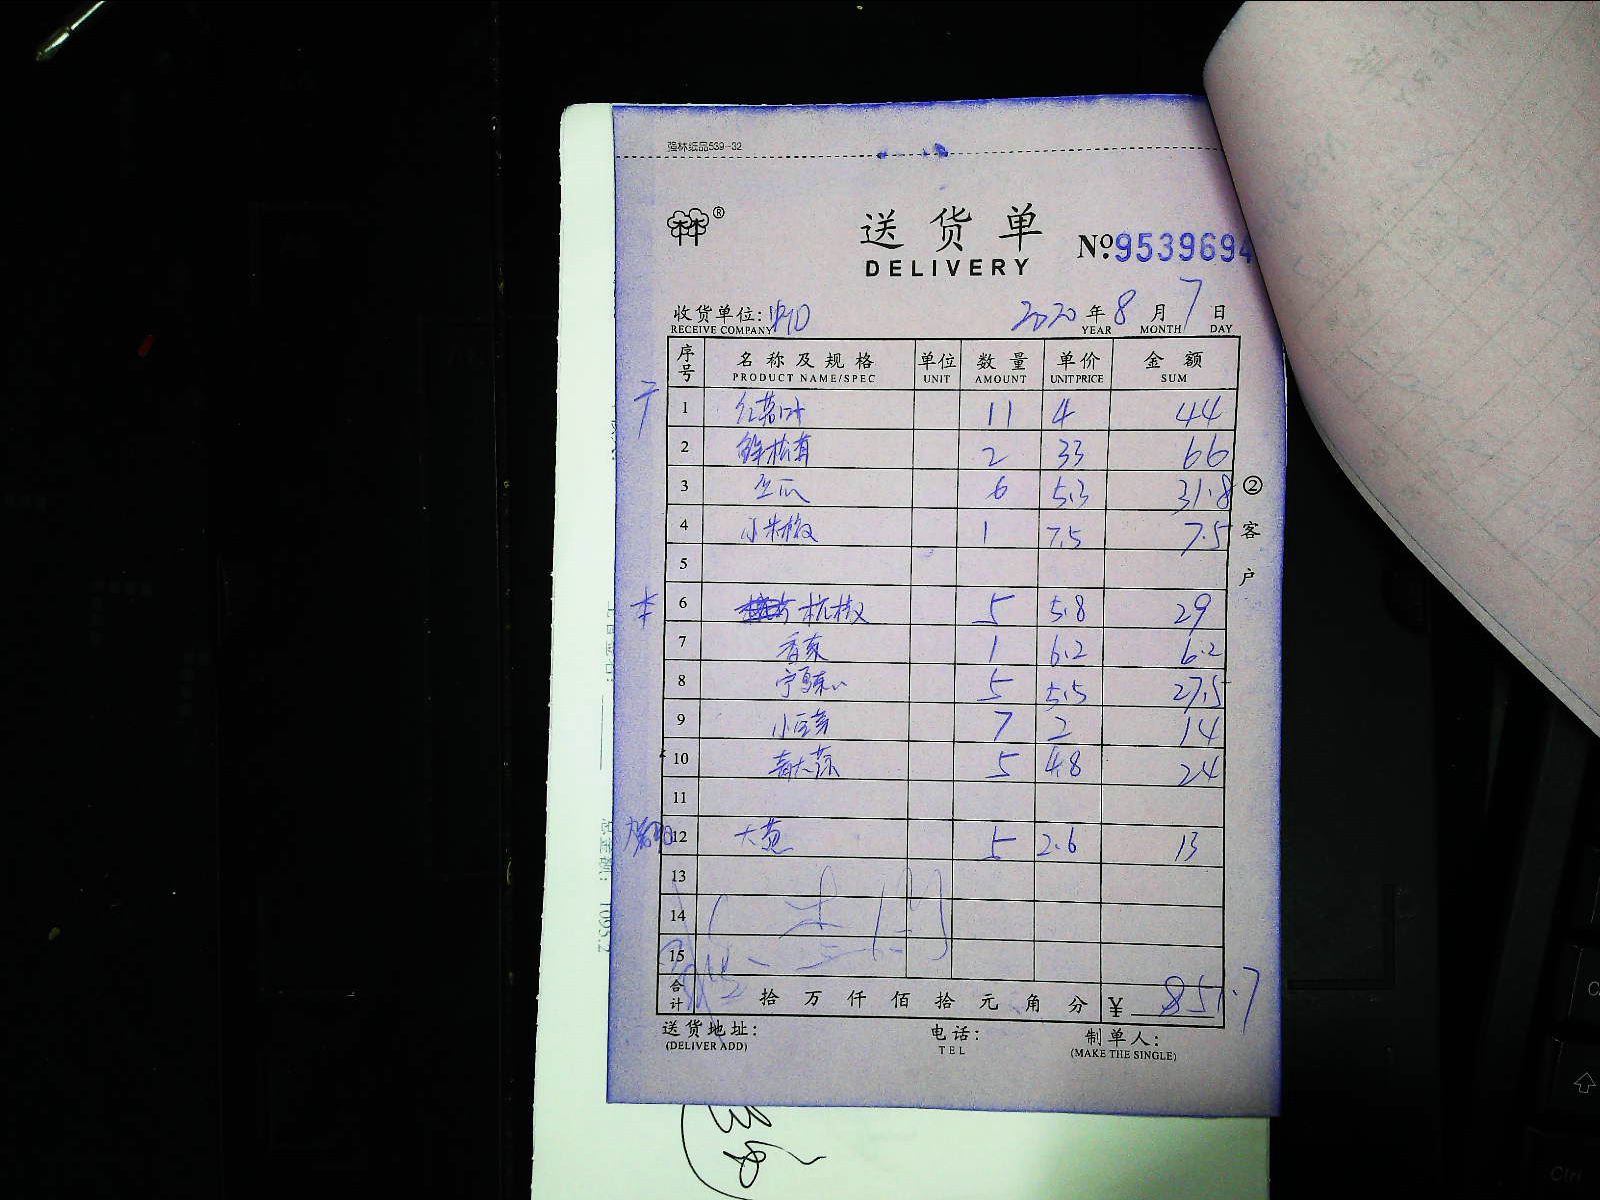 强林纸品539-32
林®
送货单
DELIVERY
No.9539694
收货单位:
RECEIVE COMPANY
2020年8月7日
YEAR MONTH DAY
序号 名称及规格 单位 数量 单价 金额
PRODUCT NAME/SPEC UNIT AMOUNT UNIT PRICE SUM
1 红苋叶 11 4 44
2 鲜松茸 2 33 66
3 丝瓜 6 5.3 31.8
4 小米椒 1 7.5 7.5
5
6 杭椒 5 5.8 29
7 香菜 1 6.2 6.2
8 宁夏菜心 5 5.5 27.5
9 小豆芽 7 2 14
10 青大蒜 5 4.8 24
11
12 大葱 5 2.6 13
13
14
15
合计 拾万仟佰拾元角分 ¥ 851.7
② 客户
送货地址: 电话: 制单人:
(DELIVER ADD) TEL (MAKE THE SINGLE)
1095.2
Ctrl